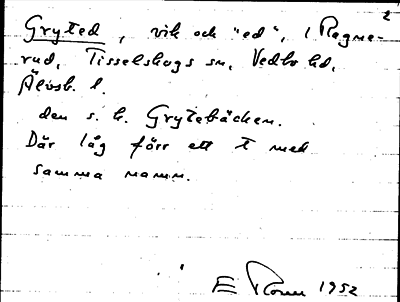 2
Gryted, vik och "ed", i Ragne-
rud, Tisselskogs sn, Vedbo hd,
Älvsb. l.
den s. k. Grytebäcken.
Där låg förr ett t med
samma namn.
E 1952